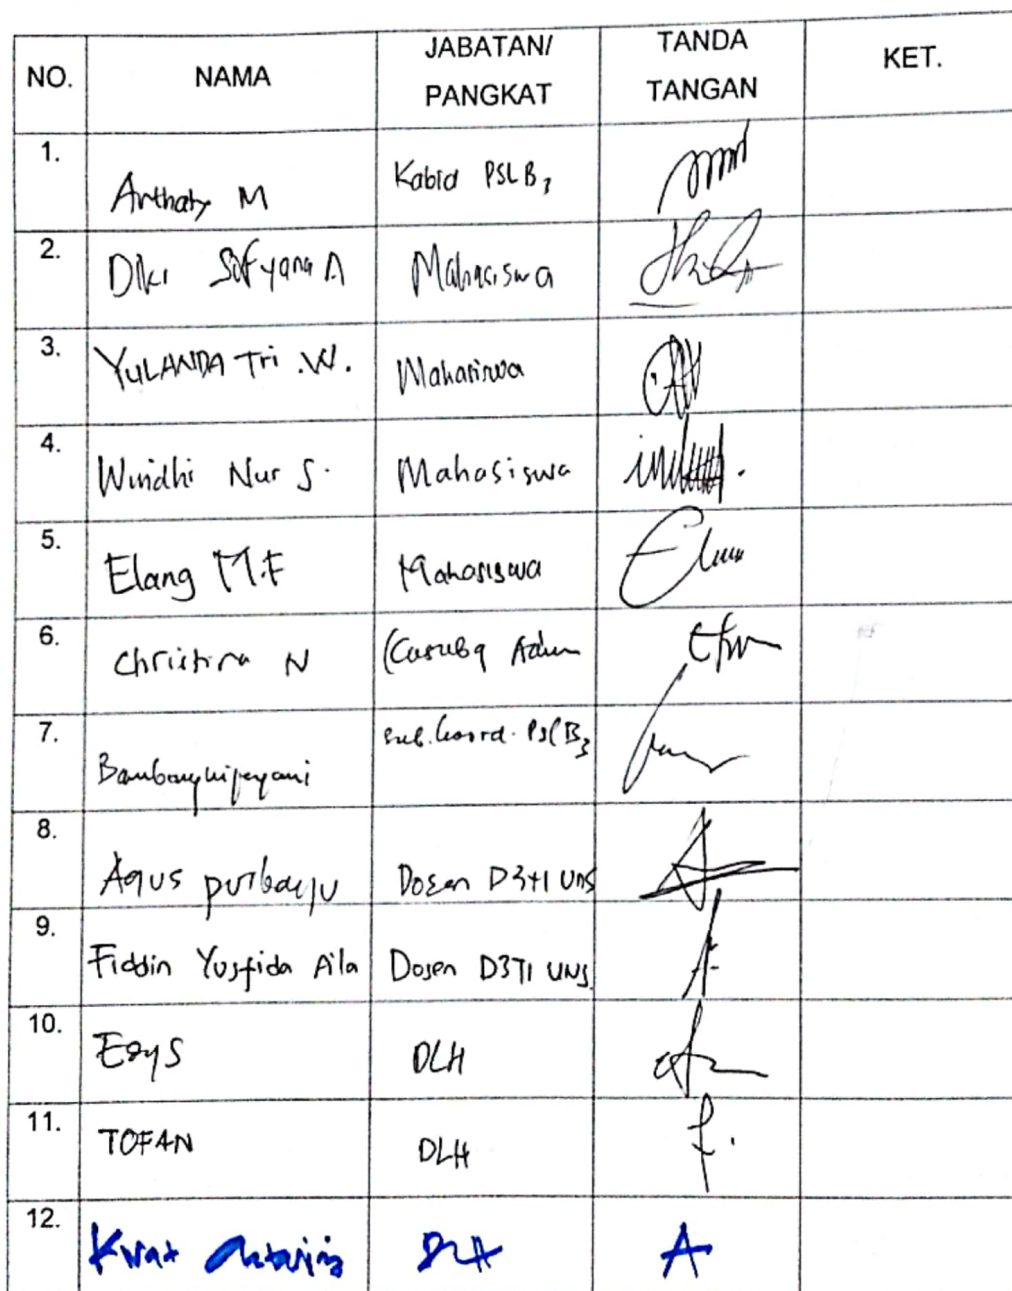 NO. NAMA JABATAN/ PANGKAT TANDA TANGAN KET.
1. M Kabid PSLB3
2. Diki Sofyana A Mahasiswa
3. YULANDA Tri .W. Mahasiswa
4. Windhi Nur S. Mahasiswa
5. Elang M.F Mahasiswa
6. Christina N
7. Sub.Koord. PSLB3
8. Agus purbayu Dosen D3TI UNS
9. Fiddin Yusfida Aila Dosen D3TI UNS.
10. DLH
11. TOFAN DLH
12. DLH